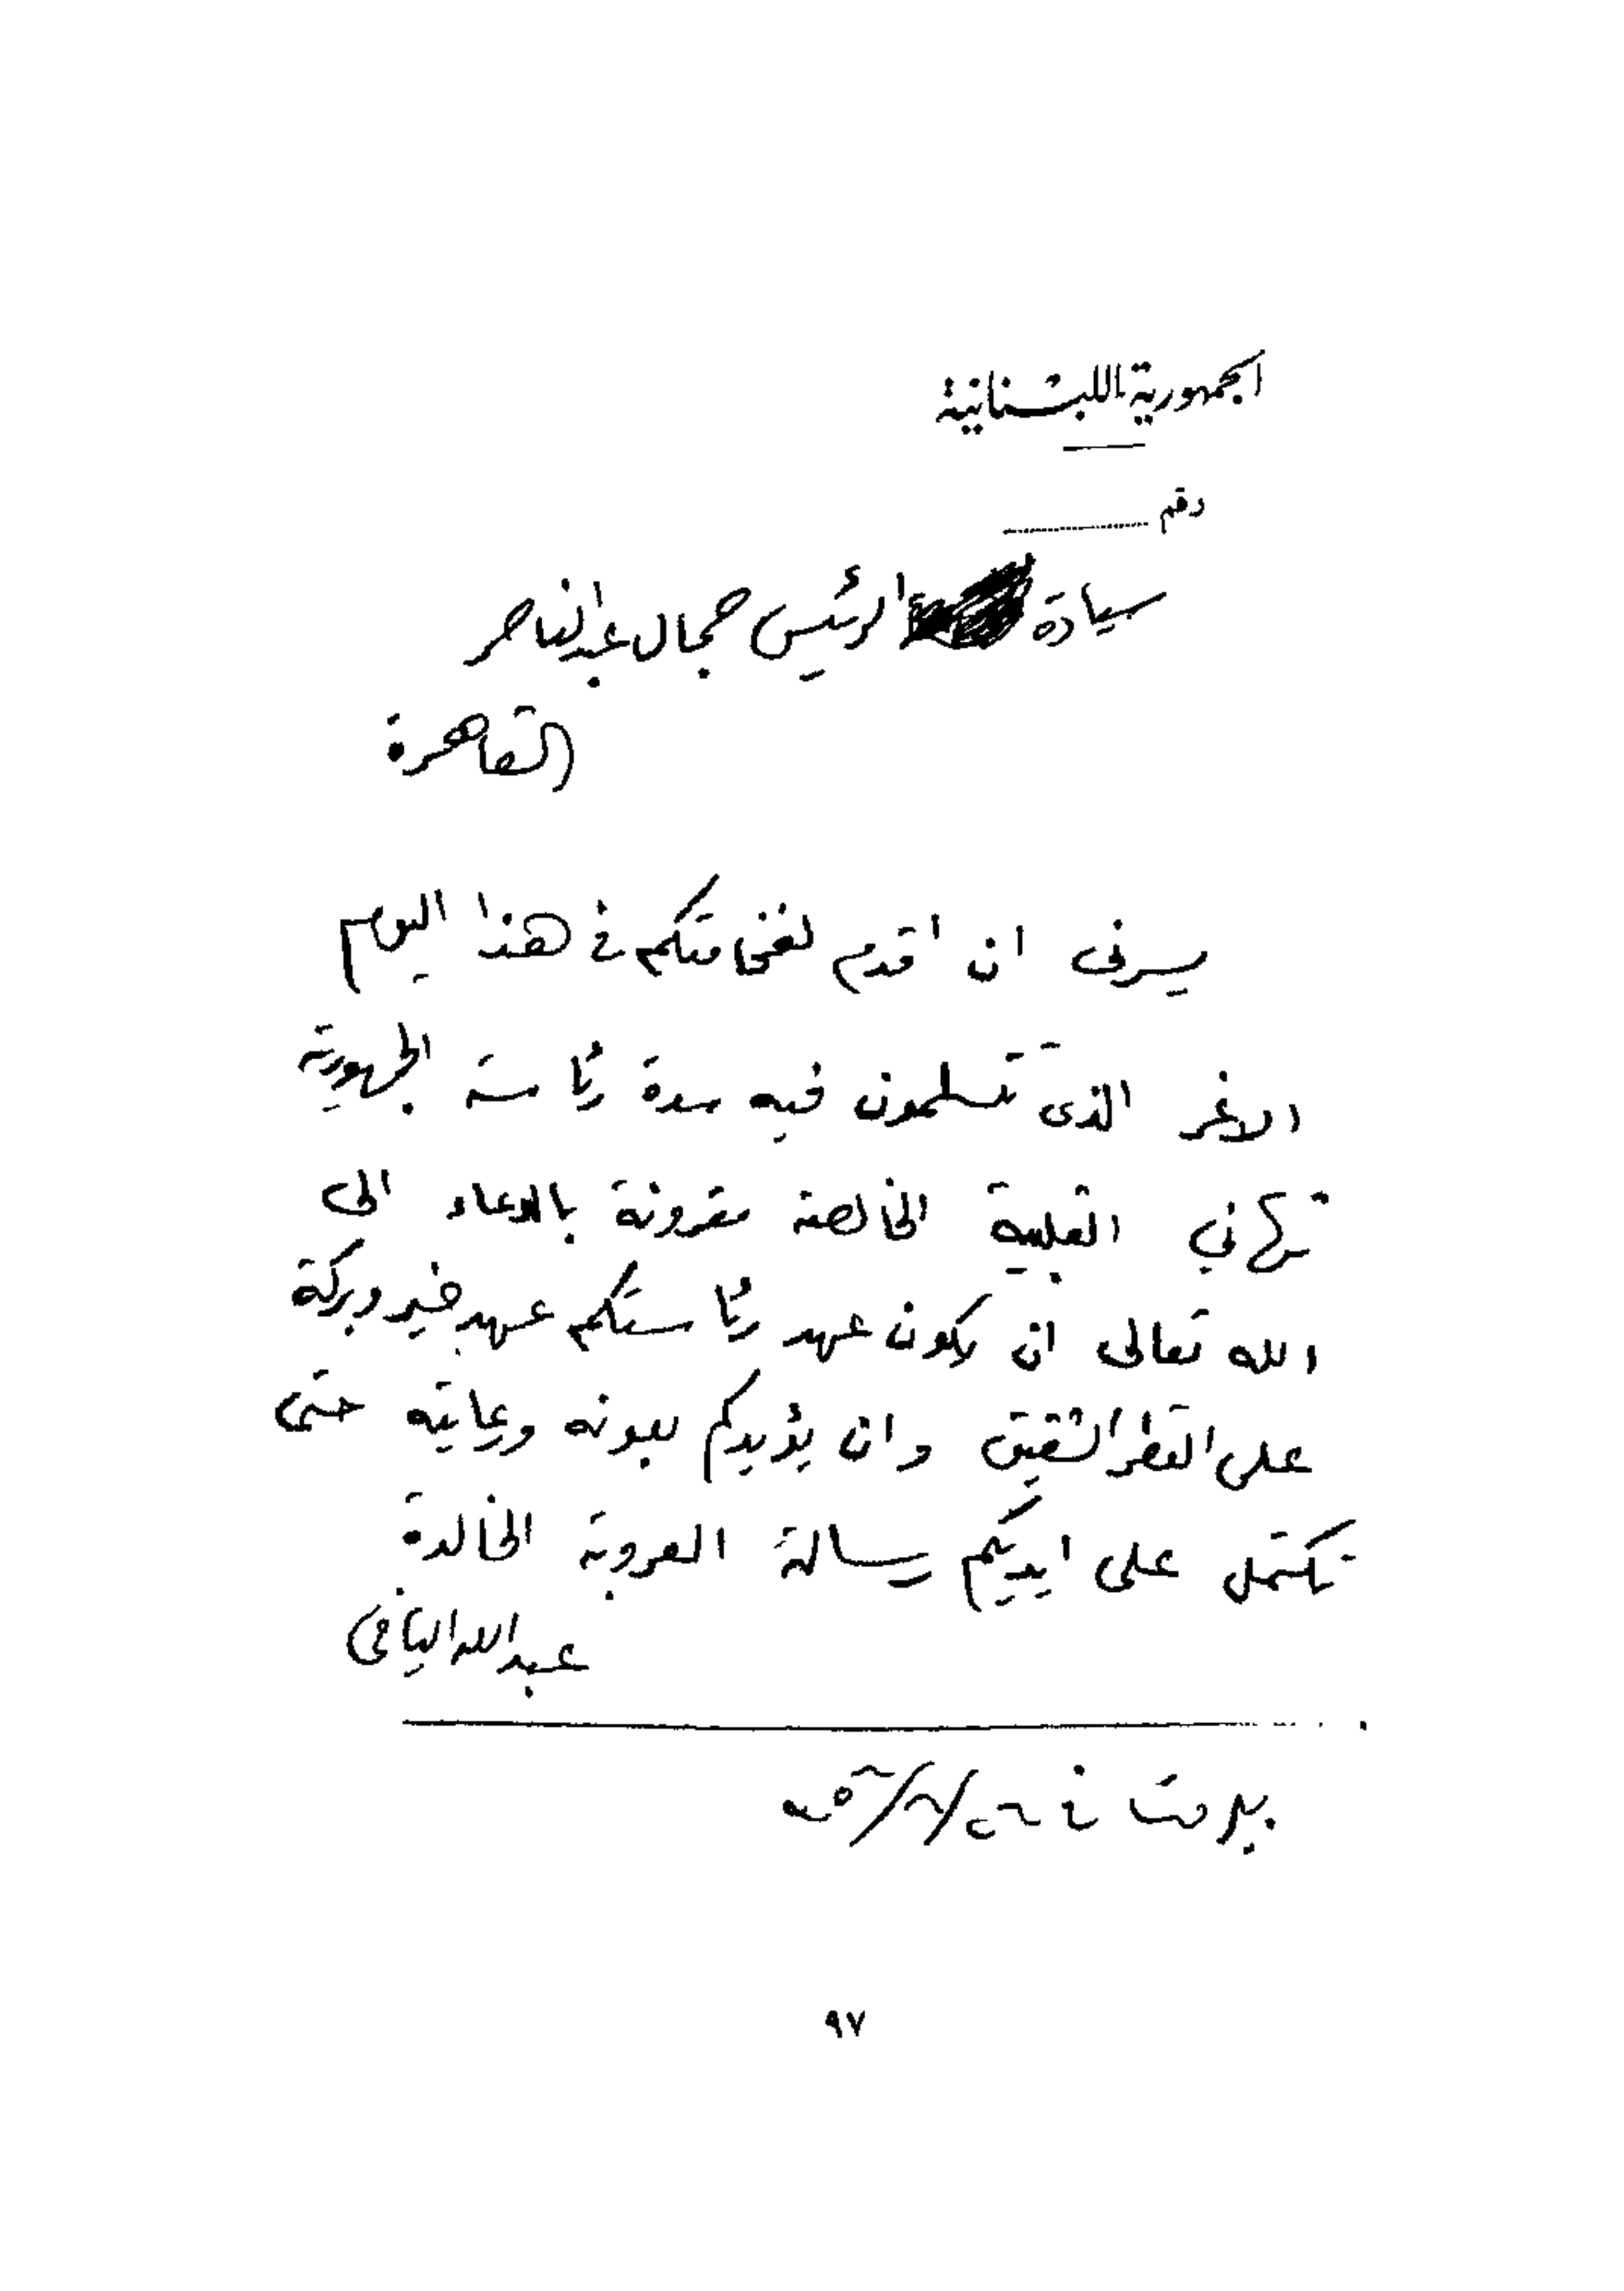 الجمهورية اللبنانية
رقم
سيادة الرئيس جمال عبد الناصر
القاهرة
يسرنى ان اقدم لفخامتكم في هذا اليوم
الاغر الذى تتسلمون فيه سدة رئاسة الجمهورية
تهاني القلبية الخالصة مقرونة بالدعاء الى
الله تعالى ان يكون عهد رئاستكم عهد خير وبركة
على القطر الشقيق وان يؤيدكم بعونه ورعايته حتى
تكتمل على ايديكم رسالة العروبة الخالدة
عبد الله اليافى
بيروت في
٩٧